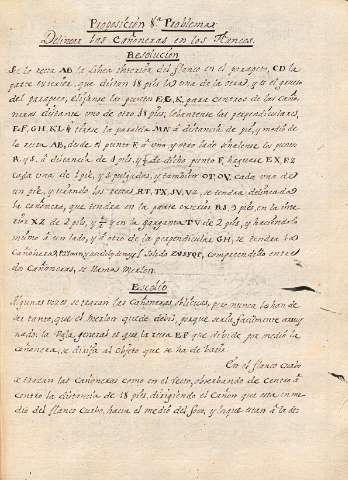 Proposicion 8.ª Problema
Delinear las Cañoneras en los flancos.
Resolucion
Sea la recta AB la linea interior del flanco en el parapeto, CD la
parte exterior, que distan 18 pies la una de la otra, y es el grueso
del parapeto, elijanse los puntos E, G, K, para centros de las Caño-
neras distante uno de otro 18 pies, levantense las perpendiculares,
EF, GH, KL, tirese la paralela MN à distancia de pie, y medio de
la recta AB, desde el punto F, à uno y otro lado señalense los puntos
R, y S, à distancia de 4 pies, y ½ de dicho punto F, haganse EX, EZ
cada una de 1 pie, y 3 pulgadas, y tambien OT, OV, cada una de
un pie, y tirando las rectas, RT, TX, SV, VZ, se tendrà delineada
la cañonera, que tendrà en la parte exterior RS 9 pies, en la inte-
rior XZ de 2 pies, y ½ y en la garganta TV de 2 pies, y haciendo lo
mismo à un lado, y à otro de la perpendicular GH, se tendrà la
Cañonera y el Solido comprendido entre
dos Cañoneras, se llama Merlon.
Escolio
Algunas vezes se trazan las Cañoneras obliquas, pero nunca lo han de
ser tanto, que el Merlon quede debil, porque serìa facilmente arrui-
nado: la Regla general es que la recta EF que divide por medio la
cañonera, se dirija al objeto que se ha de batir.
En el flanco curbo
se trazan las Cañoneras como en el recto, observando de centro à
centro la distancia de 18 pies, dirigiendo el Cañon que està en me-
dio del flanco Curbo, hacia el medio del foso, y los que estàn à la de-